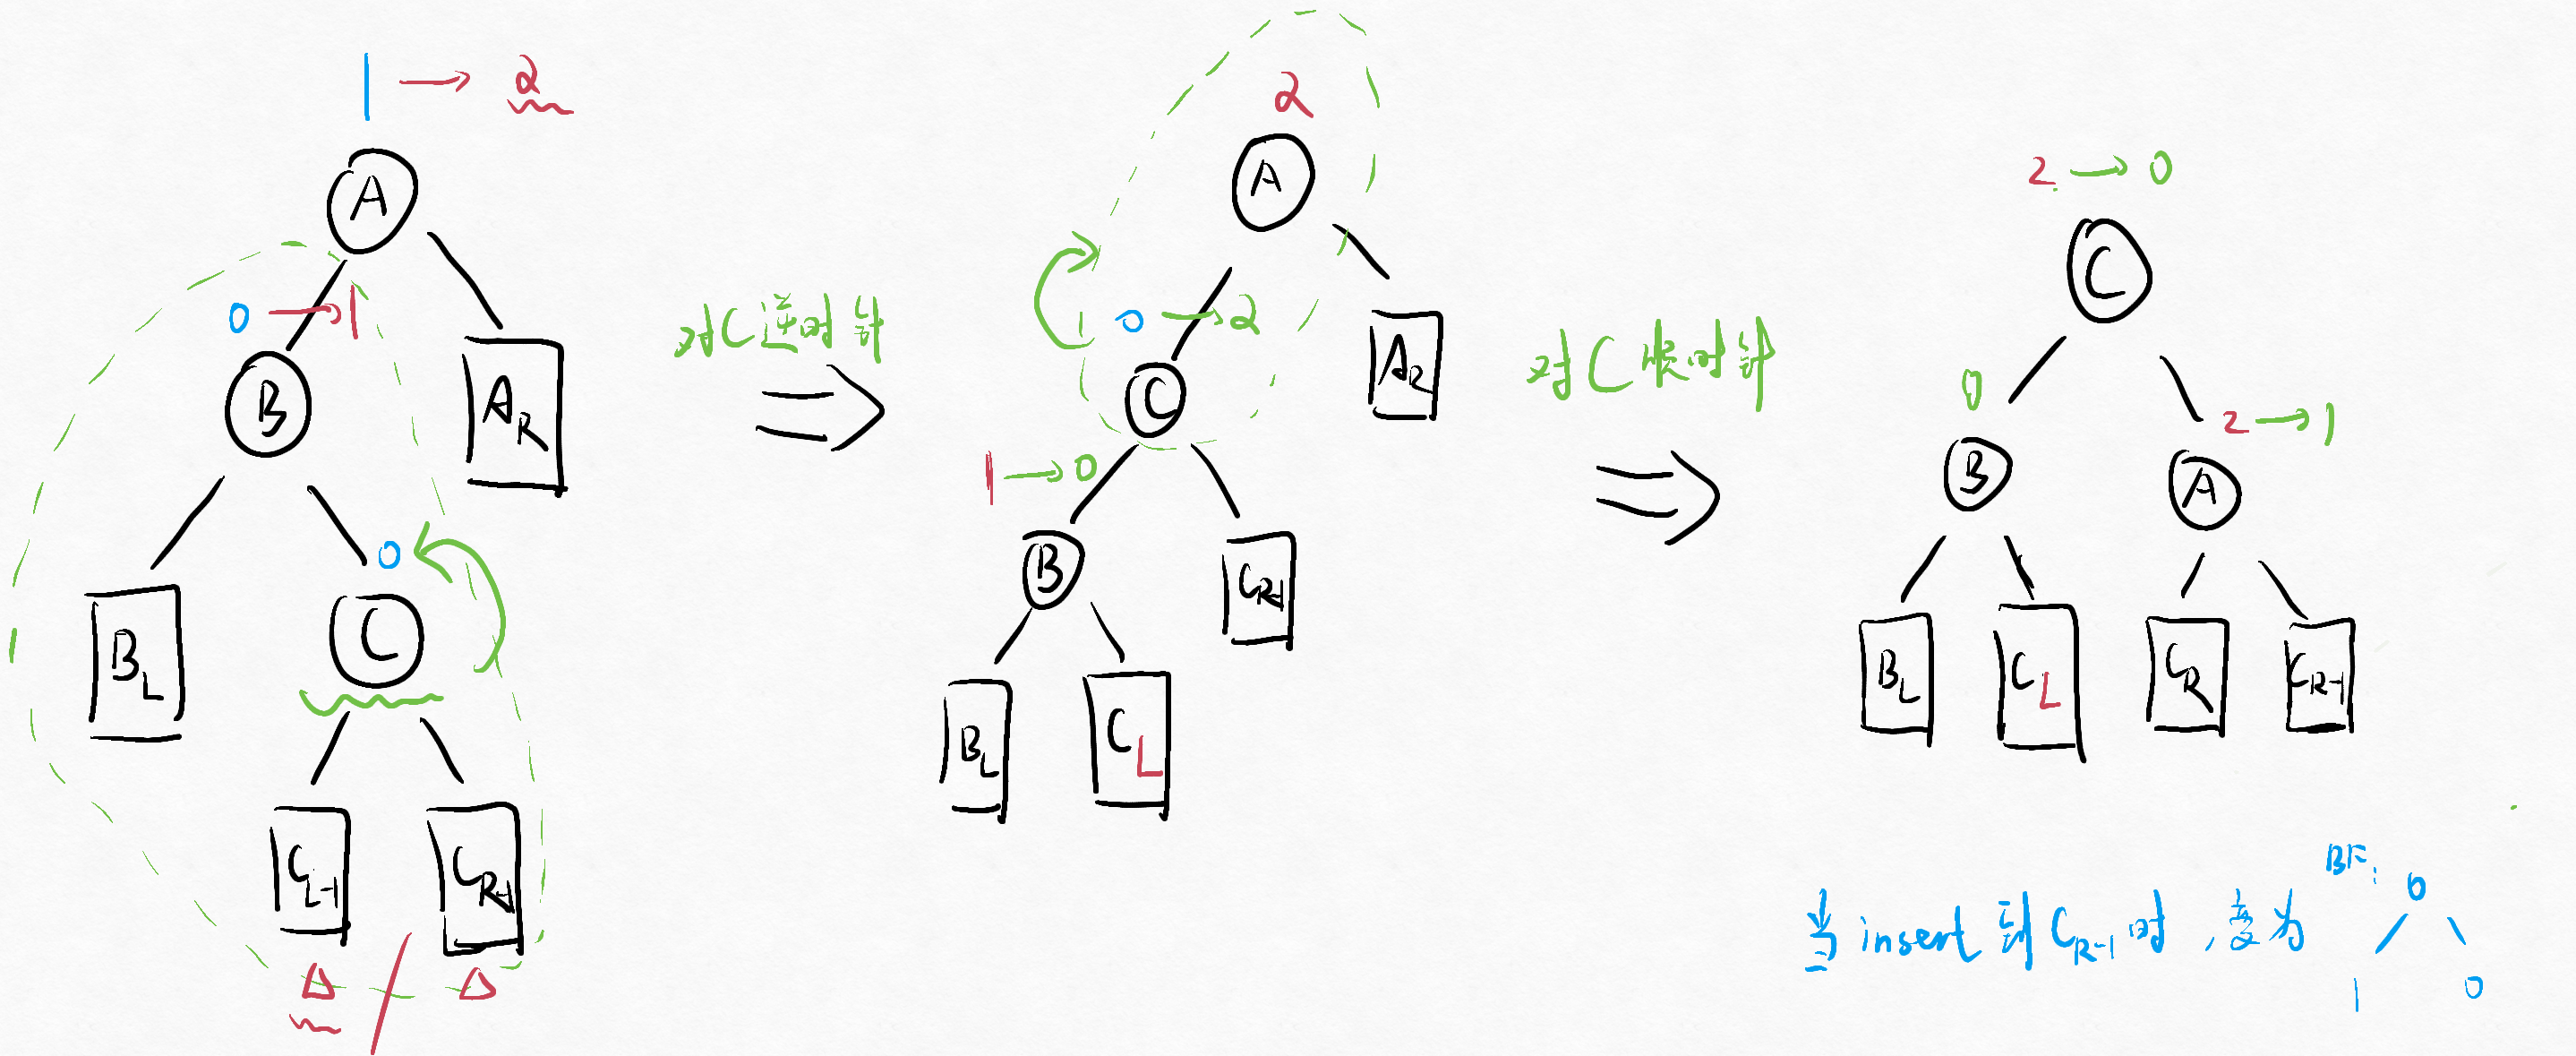 1 → 2
A
0 → 1
B
A_R
B_L
0
C
C_{L-1}
C_{R-1}
对C逆时针
2
A
0 → 2
C
A_R
1 → 0
B
C_{R-1}
B_L
C_L
对C顺时针
2 → 0
C
0
B
2 → 1
A
B_L
C_L
C_R
C_{R-1}
当insert到C_{R-1}时,变为
BF:
0
1 0